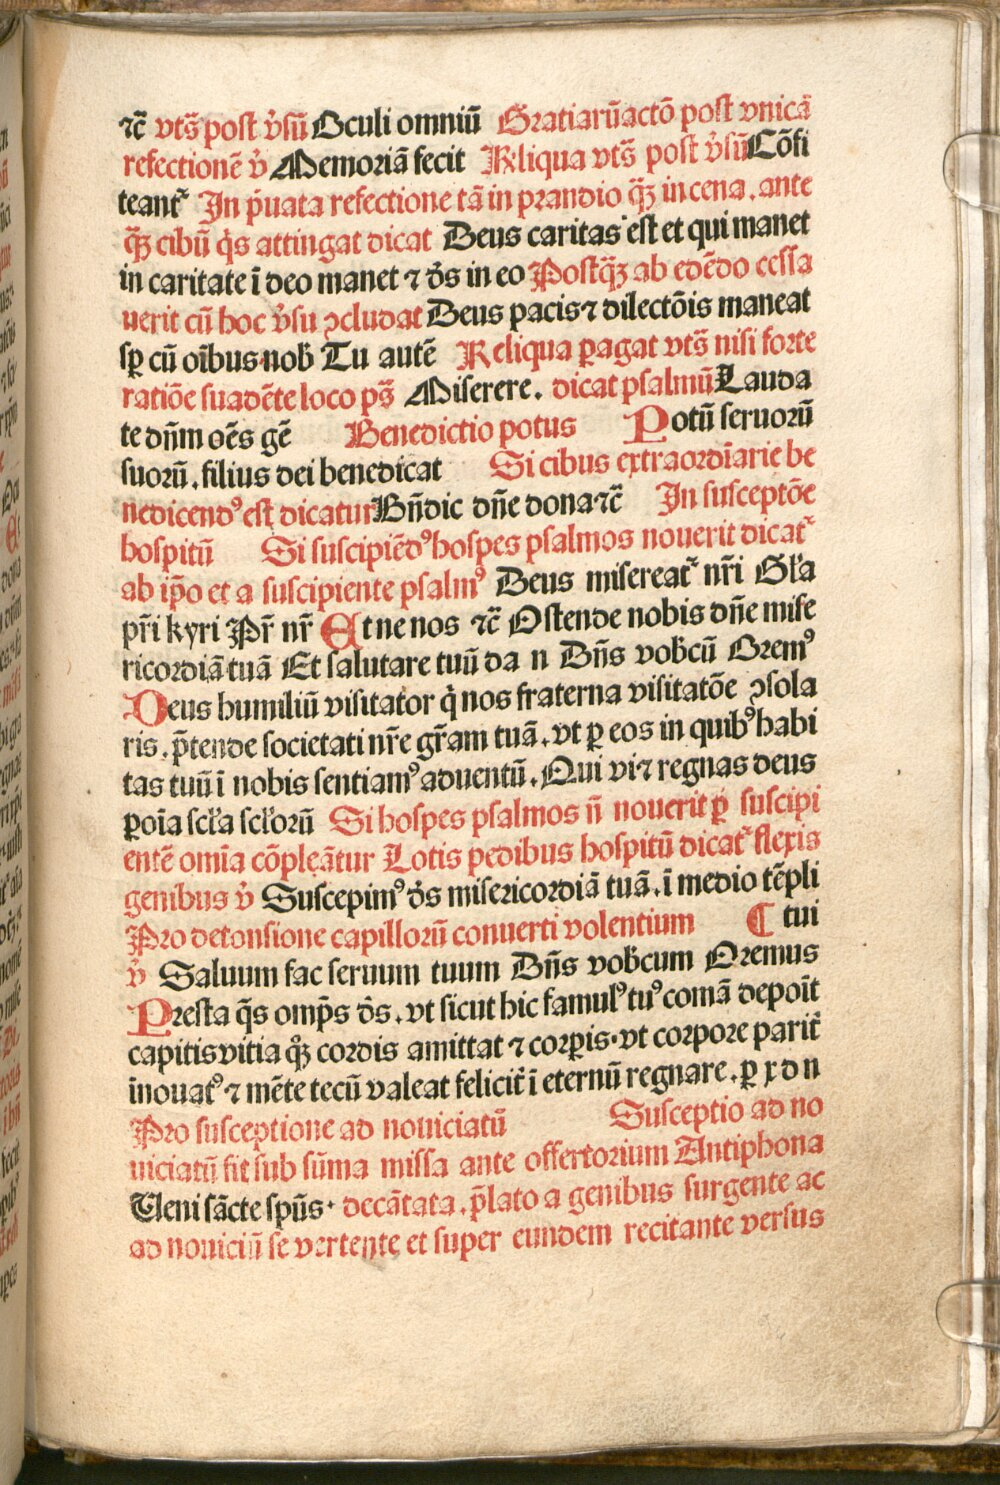 ⁊c̄ vts̄ post v̓sū Oculi omniū Gratiarūactō post vnicā
refectionē v̓ Memoriā fecit Reliqua vts̄ post v̓sū Cōfi
teantᷣ In p̓uata refectione tā in prandio qꝫ̄ in cena. ante
qꝫ̄ cibū q̓s attingat dicat Deus caritas est et qui manet
in caritate ī deo manet ⁊ d̓s in eo Postqꝫ̄ ab edēdo cessa
uerit cū hoc v̓su ꝯcludat Deus pacis ⁊ dilectōis maneat
sꝑ cū oībus nob̓ Tu autē Reliqua ꝑagat vts̄ nisi forte
ratiōe suadēte loco ps̄ Miserere. dicat psalmū Lauda
te dn̄m oēs gē Benedictio potus Potū seruorū
suorū. filius dei benedicat Si cibus extraordīarie be
nedicendꝰ est dicatur Bn̄dic dn̄e dona ⁊c̄ In susceptōe
hospitū Si suscipiēdꝰ hospes psalmos nouerit dicatᷣ
ab ip̄o et a suscipiente psalmꝰ Deus misereatᷣ nr̄i Gl̓a
pr̄i kyri Pr̄ nr̄ Et ne nos ⁊c̄ Ostende nobis dn̄e mise
ricordiā tuā Et salutare tuū da n Dn̄s vob̓cū Oremꝰ
Deus humiliū visitator q̓ nos fraterna visitatōe ꝯsola
ris. p̄tende societati nr̄e gr̄am tuā. vt ꝑ eos in quibꝰ habi
tas tuū ī nobis sentiamꝰ aduentū. Qui vi ⁊ regnas deus
ꝑ oīa scl̓a scl̓orū Si hospes psalmos n̄ nouerit ꝑ suscipi
entē omīa cōpleātur Lotis pedibus hospitū dicatᷣ flexis
genibus v̓ Suscepimꝰ d̓s misericordiā tuā. ī medio tēpli
Pro detonsione capillorū conuerti volentium ¶ tui
v̓ Saluum fac seruum tuum Dn̄s vob̓cum Oremus
Presta q̄s omp̄s d̓s. vt sicut hic famulꝰ tuꝰ comā depoīt
capitis vitia qꝫ̓ cordis amittat ⁊ corꝑis. vt corpore parit̓
īnouatꝰ ⁊ mēte tecū valeat felicit̓ ī eternū regnare. ꝑ x d n
Pro susceptione ad nouiciatū Susceptio ad no
uiciatū fit sub sūma missa ante offertorium Antiphona
Ueni sācte spūs. decātata. p̄lato a genibus surgente ac
ad nouiciū se vertente et super eundem recitante versus